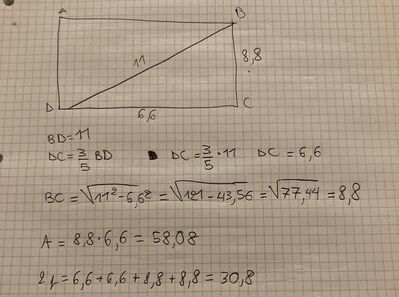 A B
11
8,8
D C
6,6
BD=11
DC=3/5 BD DC=3/5·11 DC=6,6
BC=√11²-6,6² =√121-43,56 =√77,44 =8,8
A = 8,8·6,6 = 58,08
2p=6,6+6,6+8,8+8,8=30,8